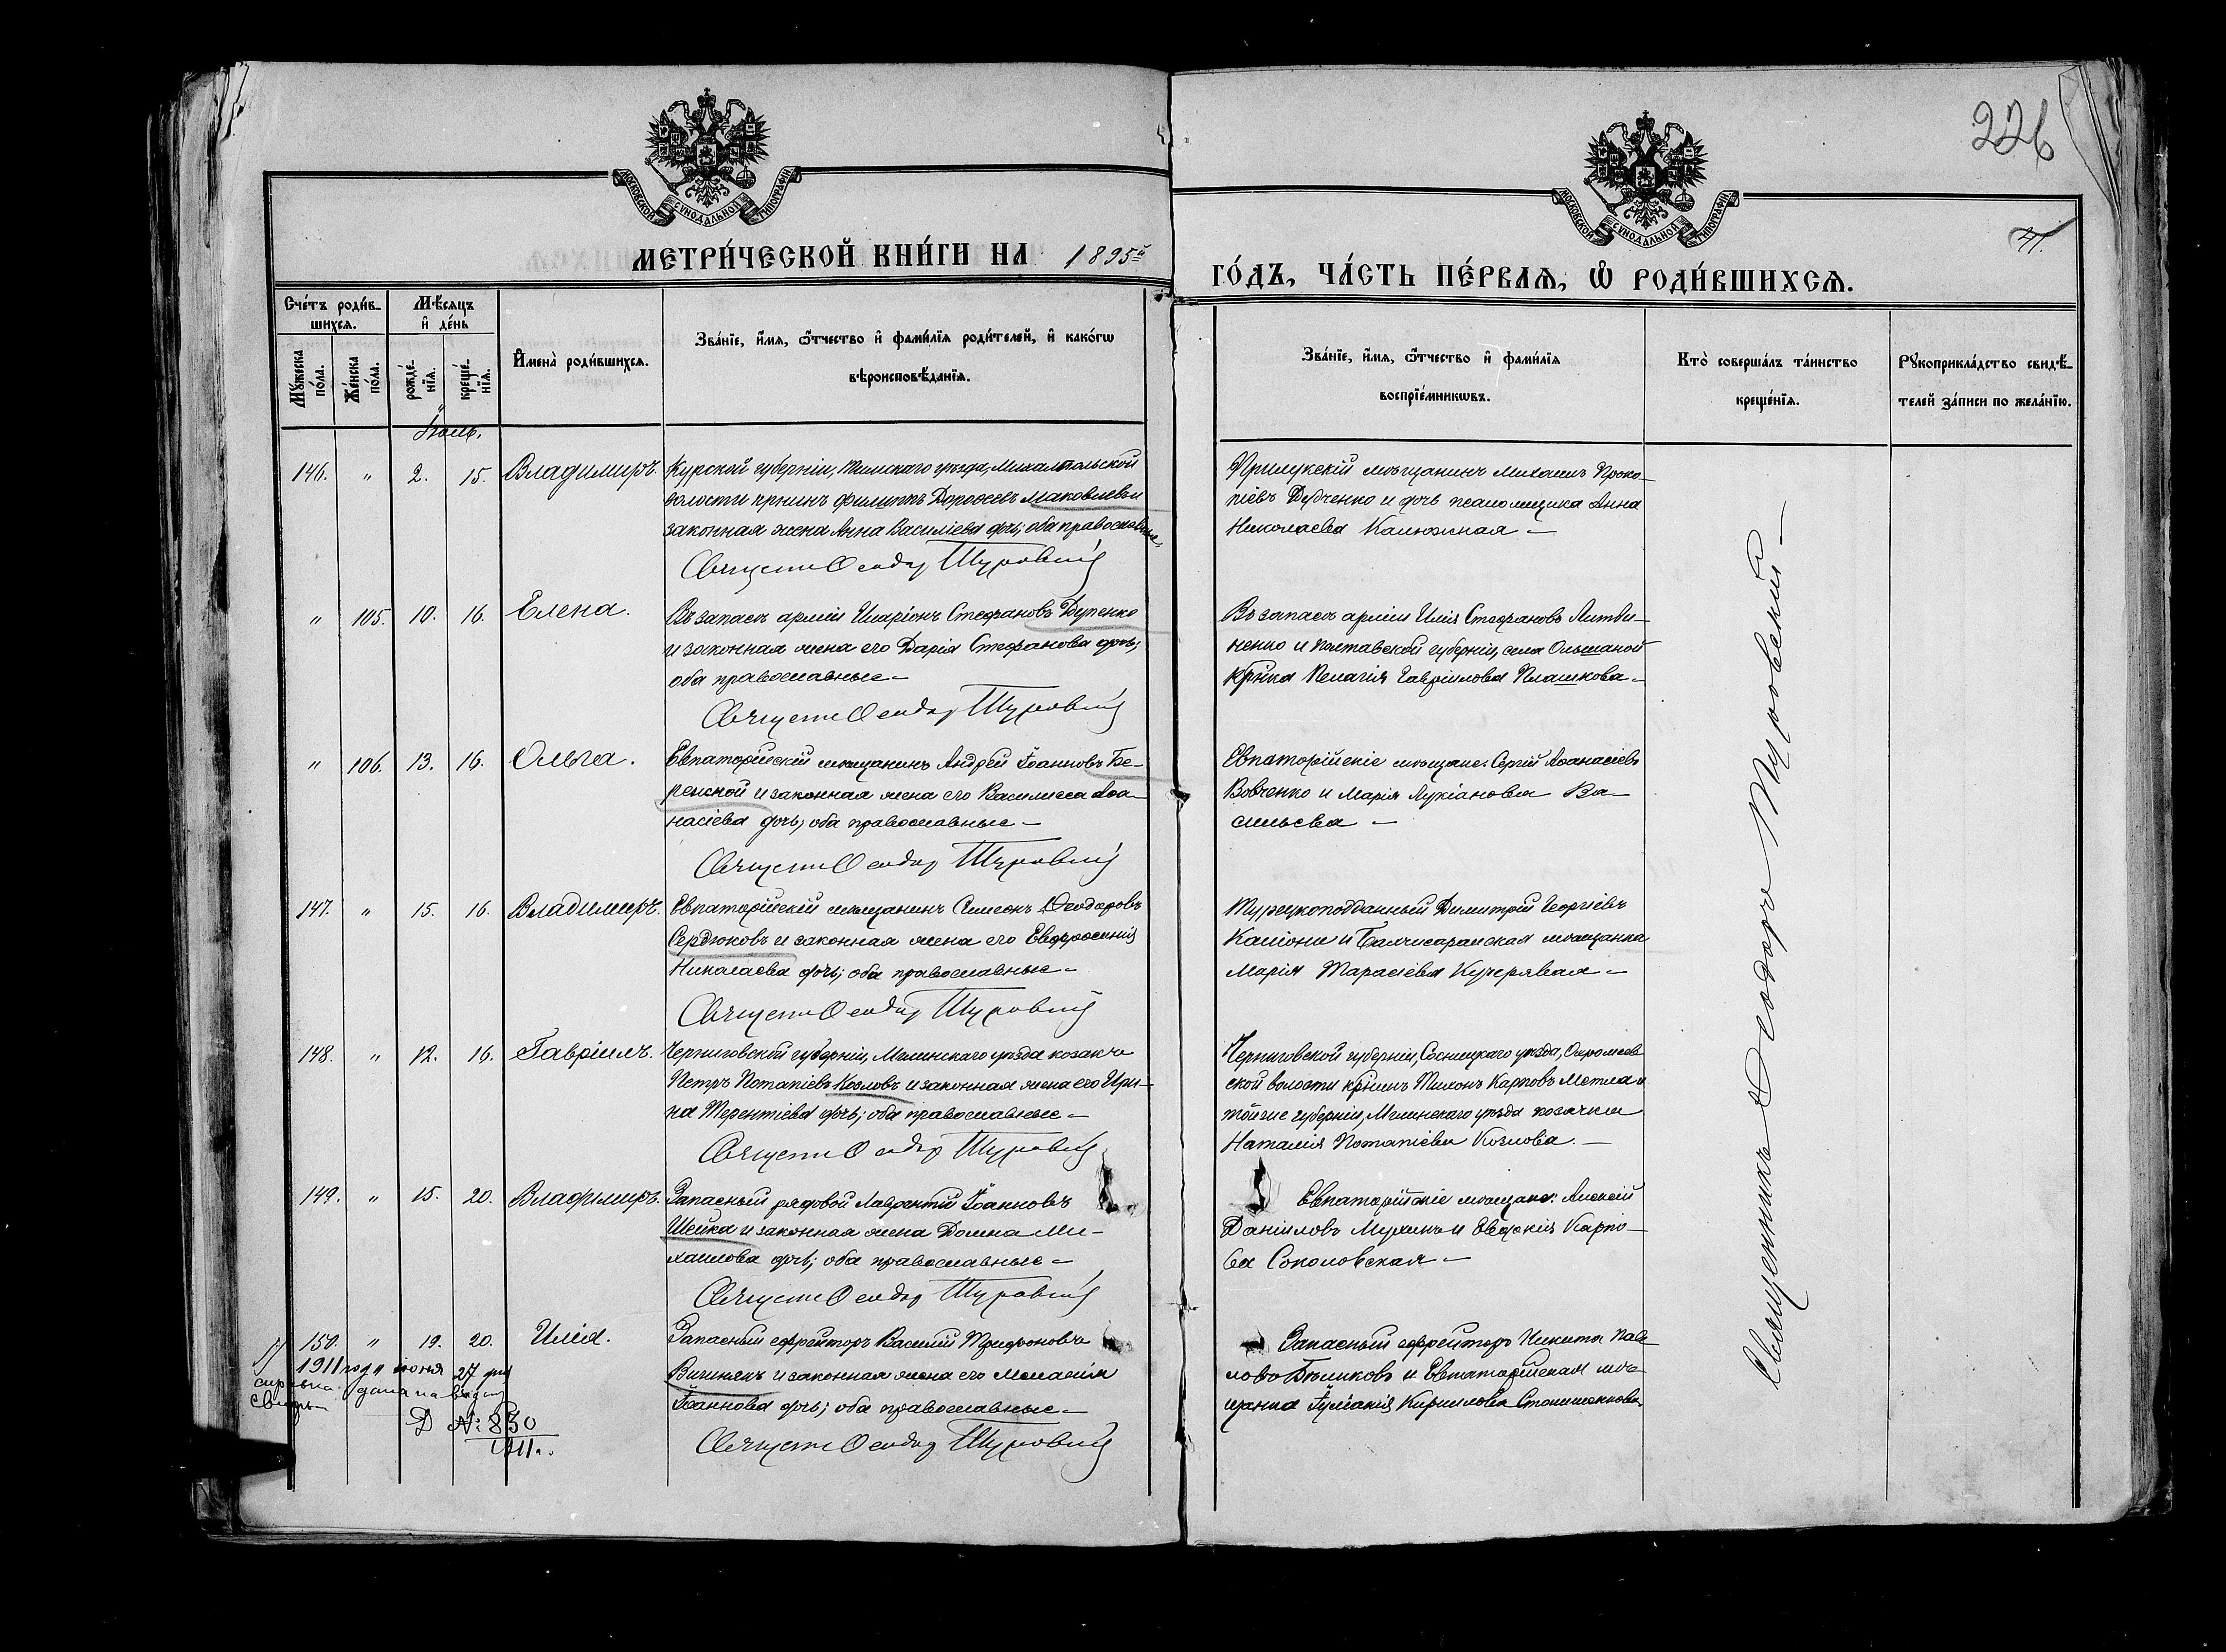 226
41.
МОСКОВСКОЙ СѴНОДАЛЬНОЙ ТИПОГРАФІИ
МОСКОВСКОЙ СѴНОДАЛЬНОЙ ТИПОГРАФІИ
МЕТРИ́ЧЕСКОЙ КНИ́ГИ НА 1895й
ГО́ДЪ, ЧА́СТЬ ПЕ́РВАѦ, Ѡ҆ РОДИ́ВШИХСѦ.
Сче́тъ роди́в-
шихсѧ.
Мꙋ́жеска по́ла.
Же́нска по́ла.
Мѣ́сѧцъ
и҆ де́нь
рожде́-
нїѧ.
креще́-
нїѧ.
И҆мена̀ роди́вшихсѧ.
Зва́нїе, и҆́мѧ, ѻ҆́тчество и҆ фами́лїѧ роди́телей, и҆ како́гѡ
вѣроисповѣ́данїѧ.
Зва́нїе, и҆́мѧ, ѻ҆́тчество и҆ фами́лїѧ
воспрїе́мникѡвъ.
Кто̀ соверша́лъ та́инство
креще́нїѧ.
Рꙋкоприкла́дство свидѣ́-
телей за́писи по жела́нїю.
Іюль.
146. " 2. 15. Владиміръ.
Курской губерніи, Тимскаго уѣзда, Михалпольской
волости крнинъ Филиппъ Дорофеевъ Маковлевъ и
законная жена Анна Василіева дочь; оба православные.
Священ Ѳеодор Шуровскій
Прилукскій мѣщанинъ Михаилъ Проко-
піевъ Дудченко и дочь псаломщика Анна
Николаева Калюжная —
" 105. 10. 16. Елена.
Въ запасѣ арміи Иларіонъ Стефановъ Дупенко
и законная жена его Дарія Стефанова дочь;
оба православные —
Священ Ѳеодор Шуровскій
Въ запасѣ арміи Илія Стефановъ Литви-
ненко и Полтавской губерніи, села Ольшаной
крнка Пелагія Гавріилова Плашкова —
" 106. 13. 16. Ольга.
Евпаторійскій мѣщанинъ Андрей Іоанновъ Бе-
режной и законная жена его Василисса Аѳа-
насіева дочь; оба православные —
Священ Ѳеодор Шуровскій
Евпаторійскіе мѣщане: Сергій Аѳанасіевъ
Вовченко и Марія Лукіанова Ва-
сильева —
147. " 15. 16. Владиміръ.
Евпаторійскій мѣщанинъ Симеонъ Ѳеодоровъ
Сердюковъ и законная жена его Евфросинія
Николаева дочь; оба православные —
Священ Ѳеодор Шуровскій
Турецкоподданный Димитрій Георгіевъ
Каліони и Бахчисарайская мѣщанка
Марія Тарасіева Кучерявая —
148. " 12. 16. Гавріилъ.
Черниговской губерніи, Мглинскаго уѣзда козакъ
Петръ Потапіевъ Козловъ и законная жена его Ири-
на Терентіева дочь; оба православные —
Священ Ѳеодор Шуровскій
Черниговской губерніи, Сосницкаго уѣзда, Охромеев-
ской волости крнинъ Тихонъ Карповъ Метла и
той же губерніи, Мглинскаго уѣзда козачка
Наталія Потапіева Козлова. —
149. " 15. 20. Владиміръ.
Запасный рядовой Лаврентій Іоанновъ
Шейка и законная жена Домна Ми-
хаилова дочь; оба православные —
Священ Ѳеодор Шуровскій
Евпаторійскіе мѣщане: Алексій
Даніиловъ Мухинъ и Евдокія Карпо-
ва Соколовская —
150. " 19. 20. Илія.
Запасный ефрейторъ Василій Трифоновъ
Вичинякъ и законная жена его Меланія
Іоаннова дочь; оба православные —
Священ Ѳеодор Шуровскій
Запасный ефрейторъ Никита Пав-
ловъ Бѣликовъ и Евпаторійская мѣ-
щанка Іуліанія Кириллова
1911 года іюня 27 дня
справка дана на
Д №: 830
1911.
Священникъ Ѳеодоръ Шуровскій —